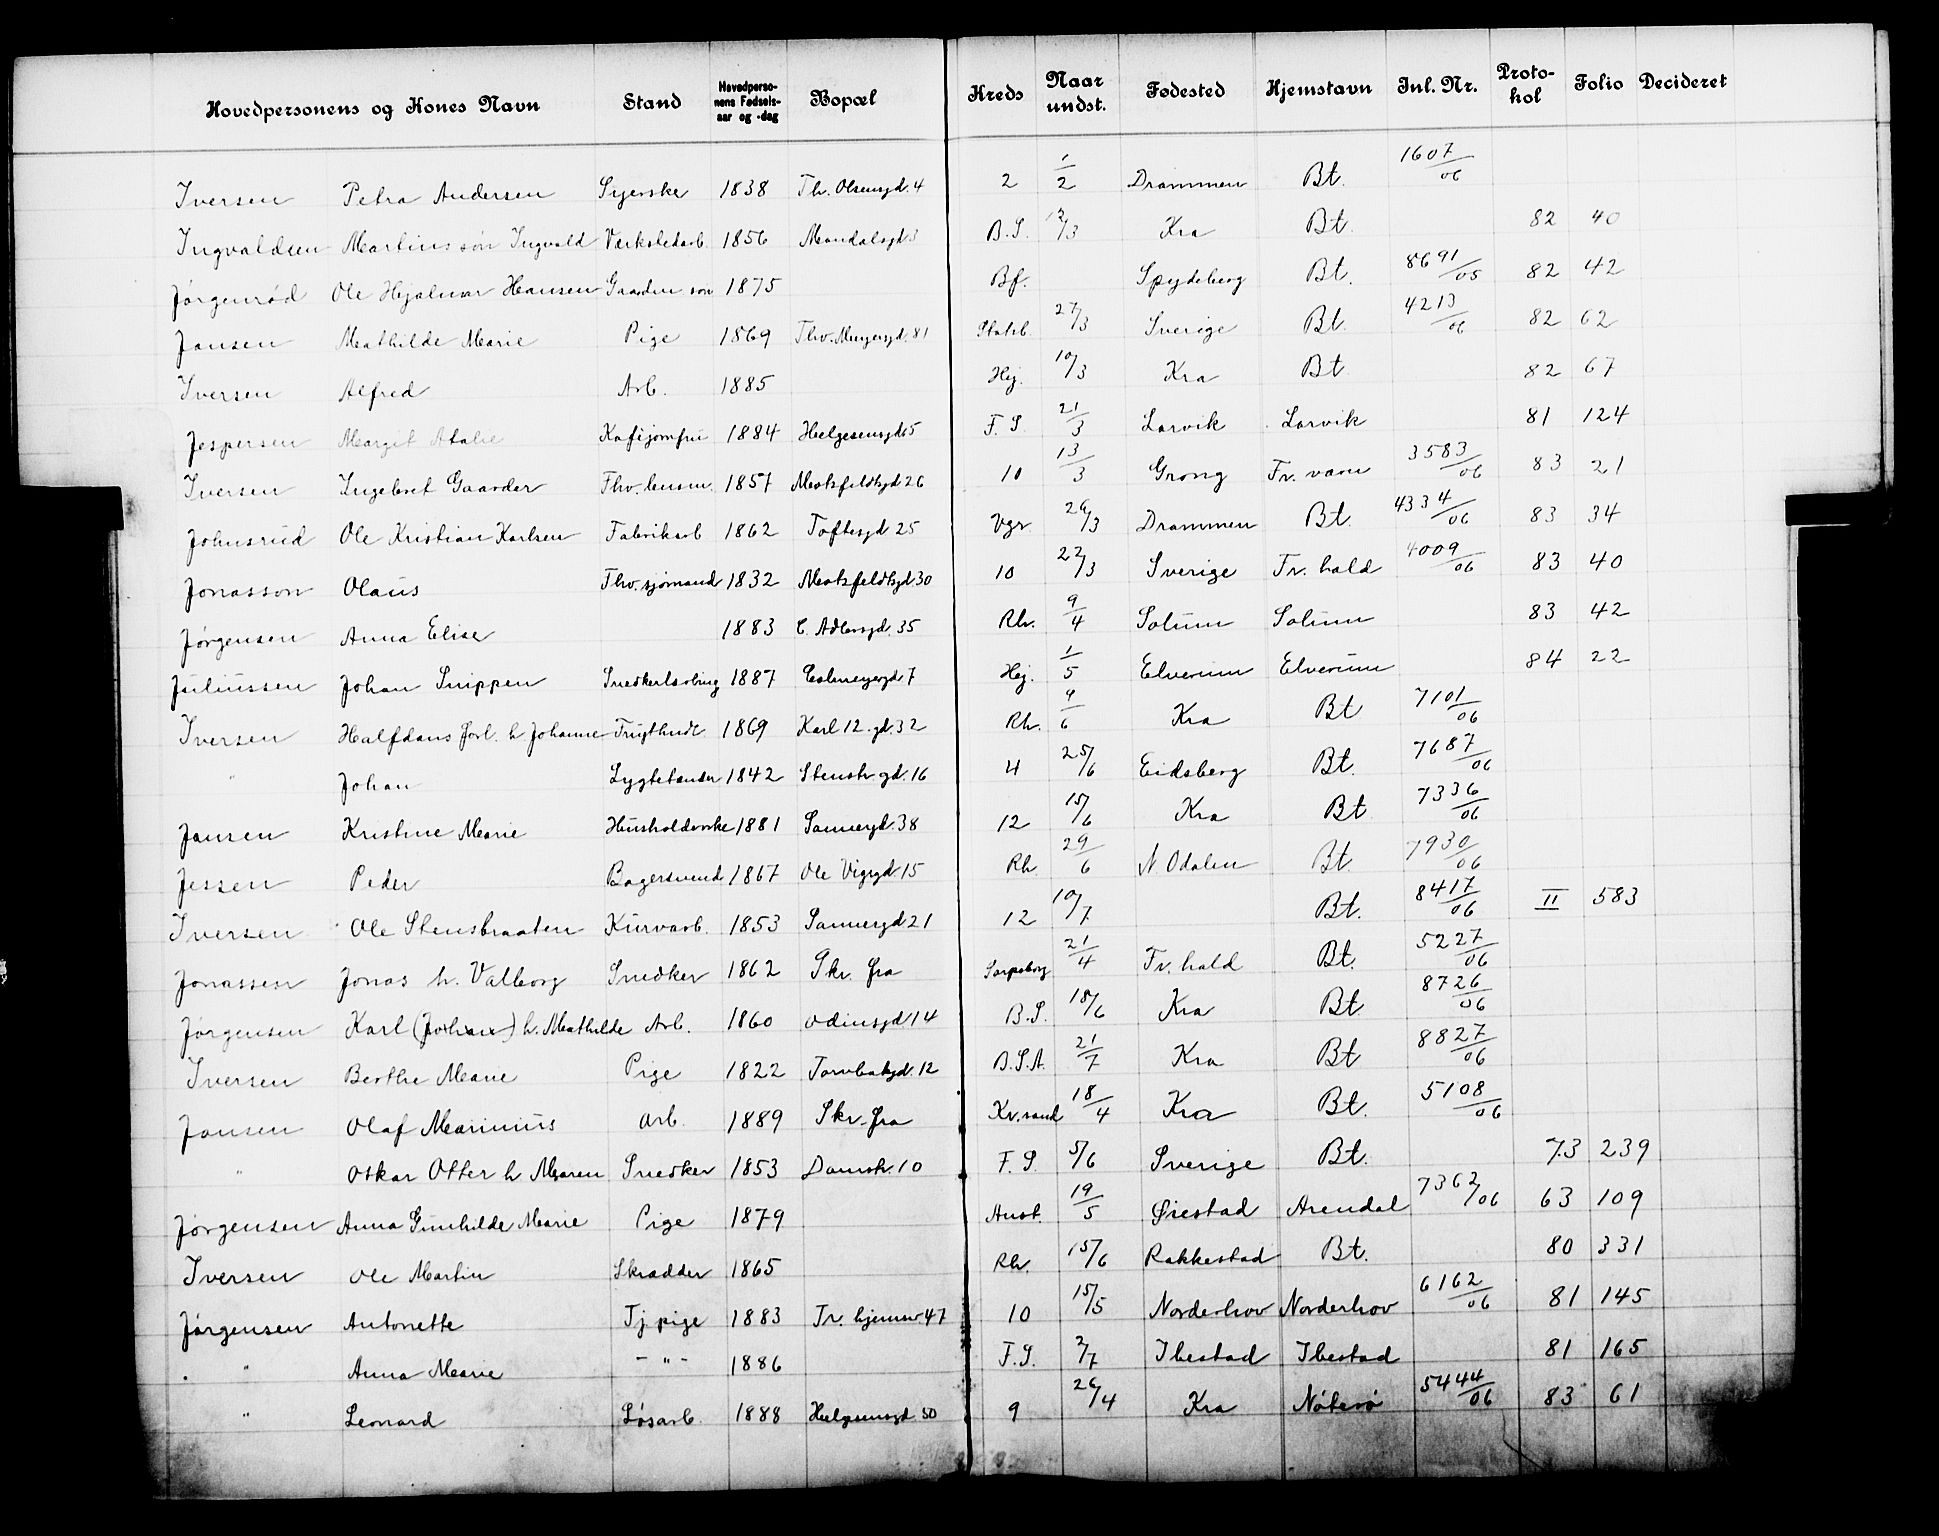 Hovedpersonens og Kones Navn Stand Hovedpersonens Fødselsaar og -dag Bopæl Kreds Naar undst. Fødested Hjemstavn Inl. Nr. Protokol Folio Decideret
Iversen Petra Andersen Syerske 1838 Th. Olsensgd. 4 2 1/2 Drammen Bt. 1607/06
Ingvaldsen Martins søn Ingvald Værkstedarb. 1856 Mandalsgd 3 B.S. 12/3 Kra Bt. 82 40
Jørgenrød Ole Hjalmar Hansen Gaardm. søn 1875 Bf. Spydeberg Bt. 8691/05 82 42
Jansen Mathilde Marie Pige 1869 Thv. Meyersgd. 81 27/3 Sverige Bt. 4213/06 82 62
Iversen Alfred Arb. 1885 Hej. 10/3 Kra Bt. 82 67
Jespersen Margit Atalie Kafejomfru 1884 Helgesensgd 5 F.S. 21/3 Larvik Larvik 81 124
Iversen Ingebret Gaarder Fhv. lensm. 1857 Marksfeldtsgd 26 10 13/3 Grong Fr. værn 3583/06 83 21
Johnsrud Ole Kristian Karlsen Fabrikarb 1862 Toftesgd 25 Vgr. 26/3 Drammen Bt. 4334/06 83 34
Jonasson Olaus Fhv. sjømand 1832 Marksfeldtsgd 30 10 22/3 Sverige Fr. hald 4009/06 83 40
Jørgensen Anna Elise 1883 C. Adlersgd. 35 Rh. 9/4 Solum Solum 83 42
Juliussen Johan Snippen Snedkerlærling 1887 Colmeyergd 7 Hej. 1/5 Elverum Elverum 84 22
Iversen Halfdans forl. h Johanne Frugthndl. 1869 Karl 12. gd. 32 Rh. 9/6 Kra Bt 7101/06
" Johan Lygtetænder 1842 Stenstr. gd. 16 4 25/6 Eidsberg Bt. 7687/06
Jansen Kristine Marie Husholderske 1881 Sannergd. 38 12 15/6 Kra Bt 7336/06
Jessen Peder Bagersvend 1867 Ole Vigsgd 15 Rh. 29/6 N Odalen Bt. 7930/06
Iversen Ole Stensbraaten Kurvarb. 1853 Sannergd 21 12 10/7 Bt. 8417/06 II 583
Jonassen Jonas h. Valborg Snedker 1862 Skr. fra Sarpsborg 21/4 Fr. hald Bt. 5227/06
Jørgensen Karl (Johan) h. Mathilde Arb. 1860 Odinsgd 14 B.S. 18/6 Kra Bt 8726/06
Iversen Berthe Marie Pige 1822 Tornbakgd. 12 B.S.A. 21/7 Kra Bt 8827/06
Jansen Olaf Marinius Arb. 1889 Skr. fra Kr. sand 18/4 Kra Bt. 5108/06
" Oskar Otter h Maren Snedker 1853 Damstr. 10 F.S. 5/6 Sverige Bt. 73 239
Jørgensen Anna Gunhilde Marie Pige 1879 Aust. 19/5 Øiestad Arendal 7362/06 63 109
Iversen Ole Martin Skrædder 1865 Rh. 15/6 Rakkestad Bt. 80 331
Jørgensen Antonette Tj. pige 1883 Tr. hjemsv 47 10 15/5 Norderhov Norderhov 6162/06 81 145
" Anna Marie - " - 1886 F.S. 2/7 Ibestad Ibestad 81 165
" Leonard Løsarb. 1888 Helgesensgd 50 9 26/4 Kra Nøterø 5444/06 83 61